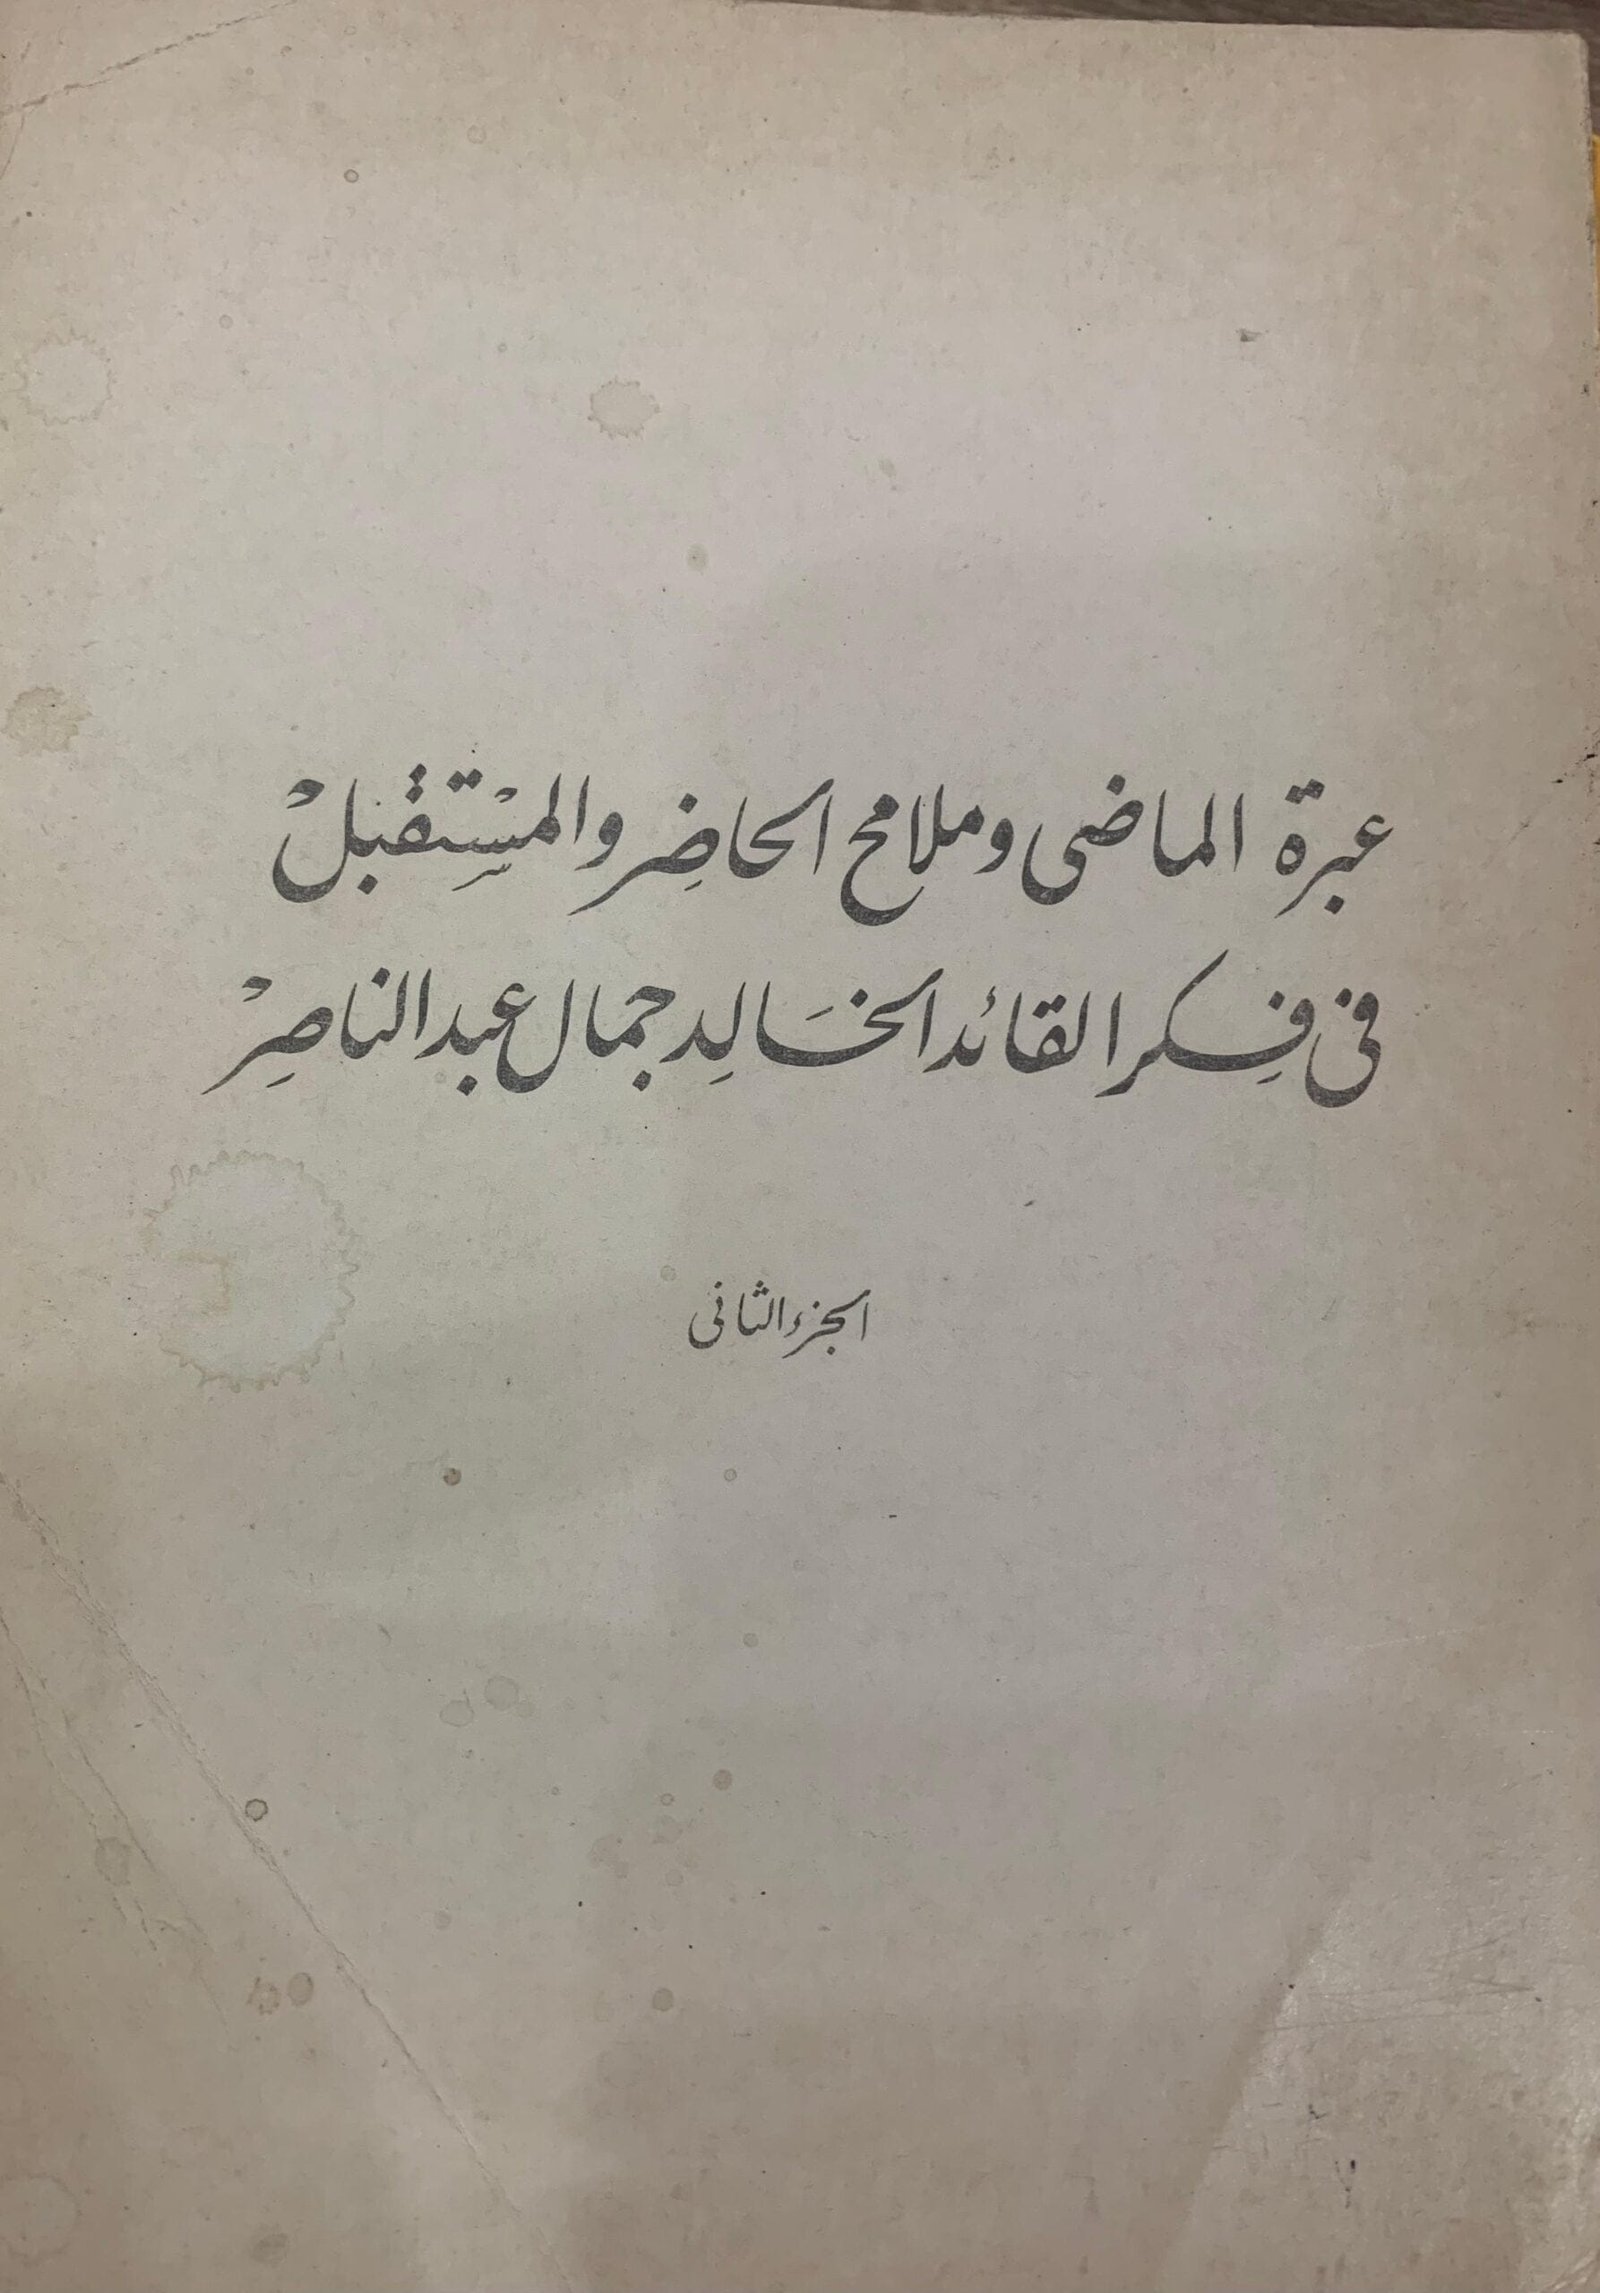 عبرة الماضى وملامح الحاضر والمستقبل
فى فكر القائد الخالد جمال عبد الناصر
الجزء الثانى